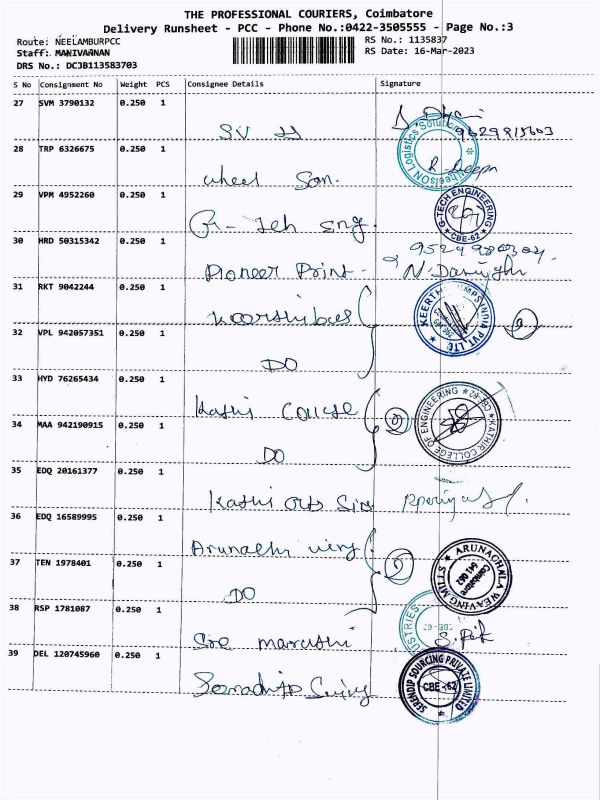 THE PROFESSIONAL COURIERS, Coimbatore
Delivery Runsheet - PCC - Phone No.:0422-3505555 - Page No.:3
Route: NEELAMBURPCC
Staff: MANIVARNAN
DRS No.: DCJB113583703
RS No.: 1135837
RS Date: 16-Mar-2023
S No Consignment No Weight PCS Consignee Details Signature
27 SVM 3790132 0.250 1
9629815603
28 TRP 6326675 0.250 1
WheelSON Logistics Solution
Wheel Son.
29 VPM 4952260 0.250 1
G-TECH ENGINEERING
CBE-62
30 HRD 50315342 0.250 1
Pioneer Print
31 RKT 9042244 0.250 1
KEERTHI PUMPS INDIA PVT LTD
32 VPL 942057351 0.250 1
DO
33 HYD 76265434 0.250 1
Kathir College 2
KATHIR COLLEGE OF ENGINEERING CBE-62
34 MAA 942190915 0.250 1
DO
35 EDQ 20161377 0.250 1
36 EDQ 16589995 0.250 1
ARUNACHALA WEAVING MILLS
Coimbatore
641 062
37 TEN 1978401 0.250 1
DO
38 RSP 1781087 0.250 1
USTRIES
Sre maruthi
39 DEL 120745960 0.250 1
SERENDIP SOURCING PRIVATE LIMITED
CBE-62